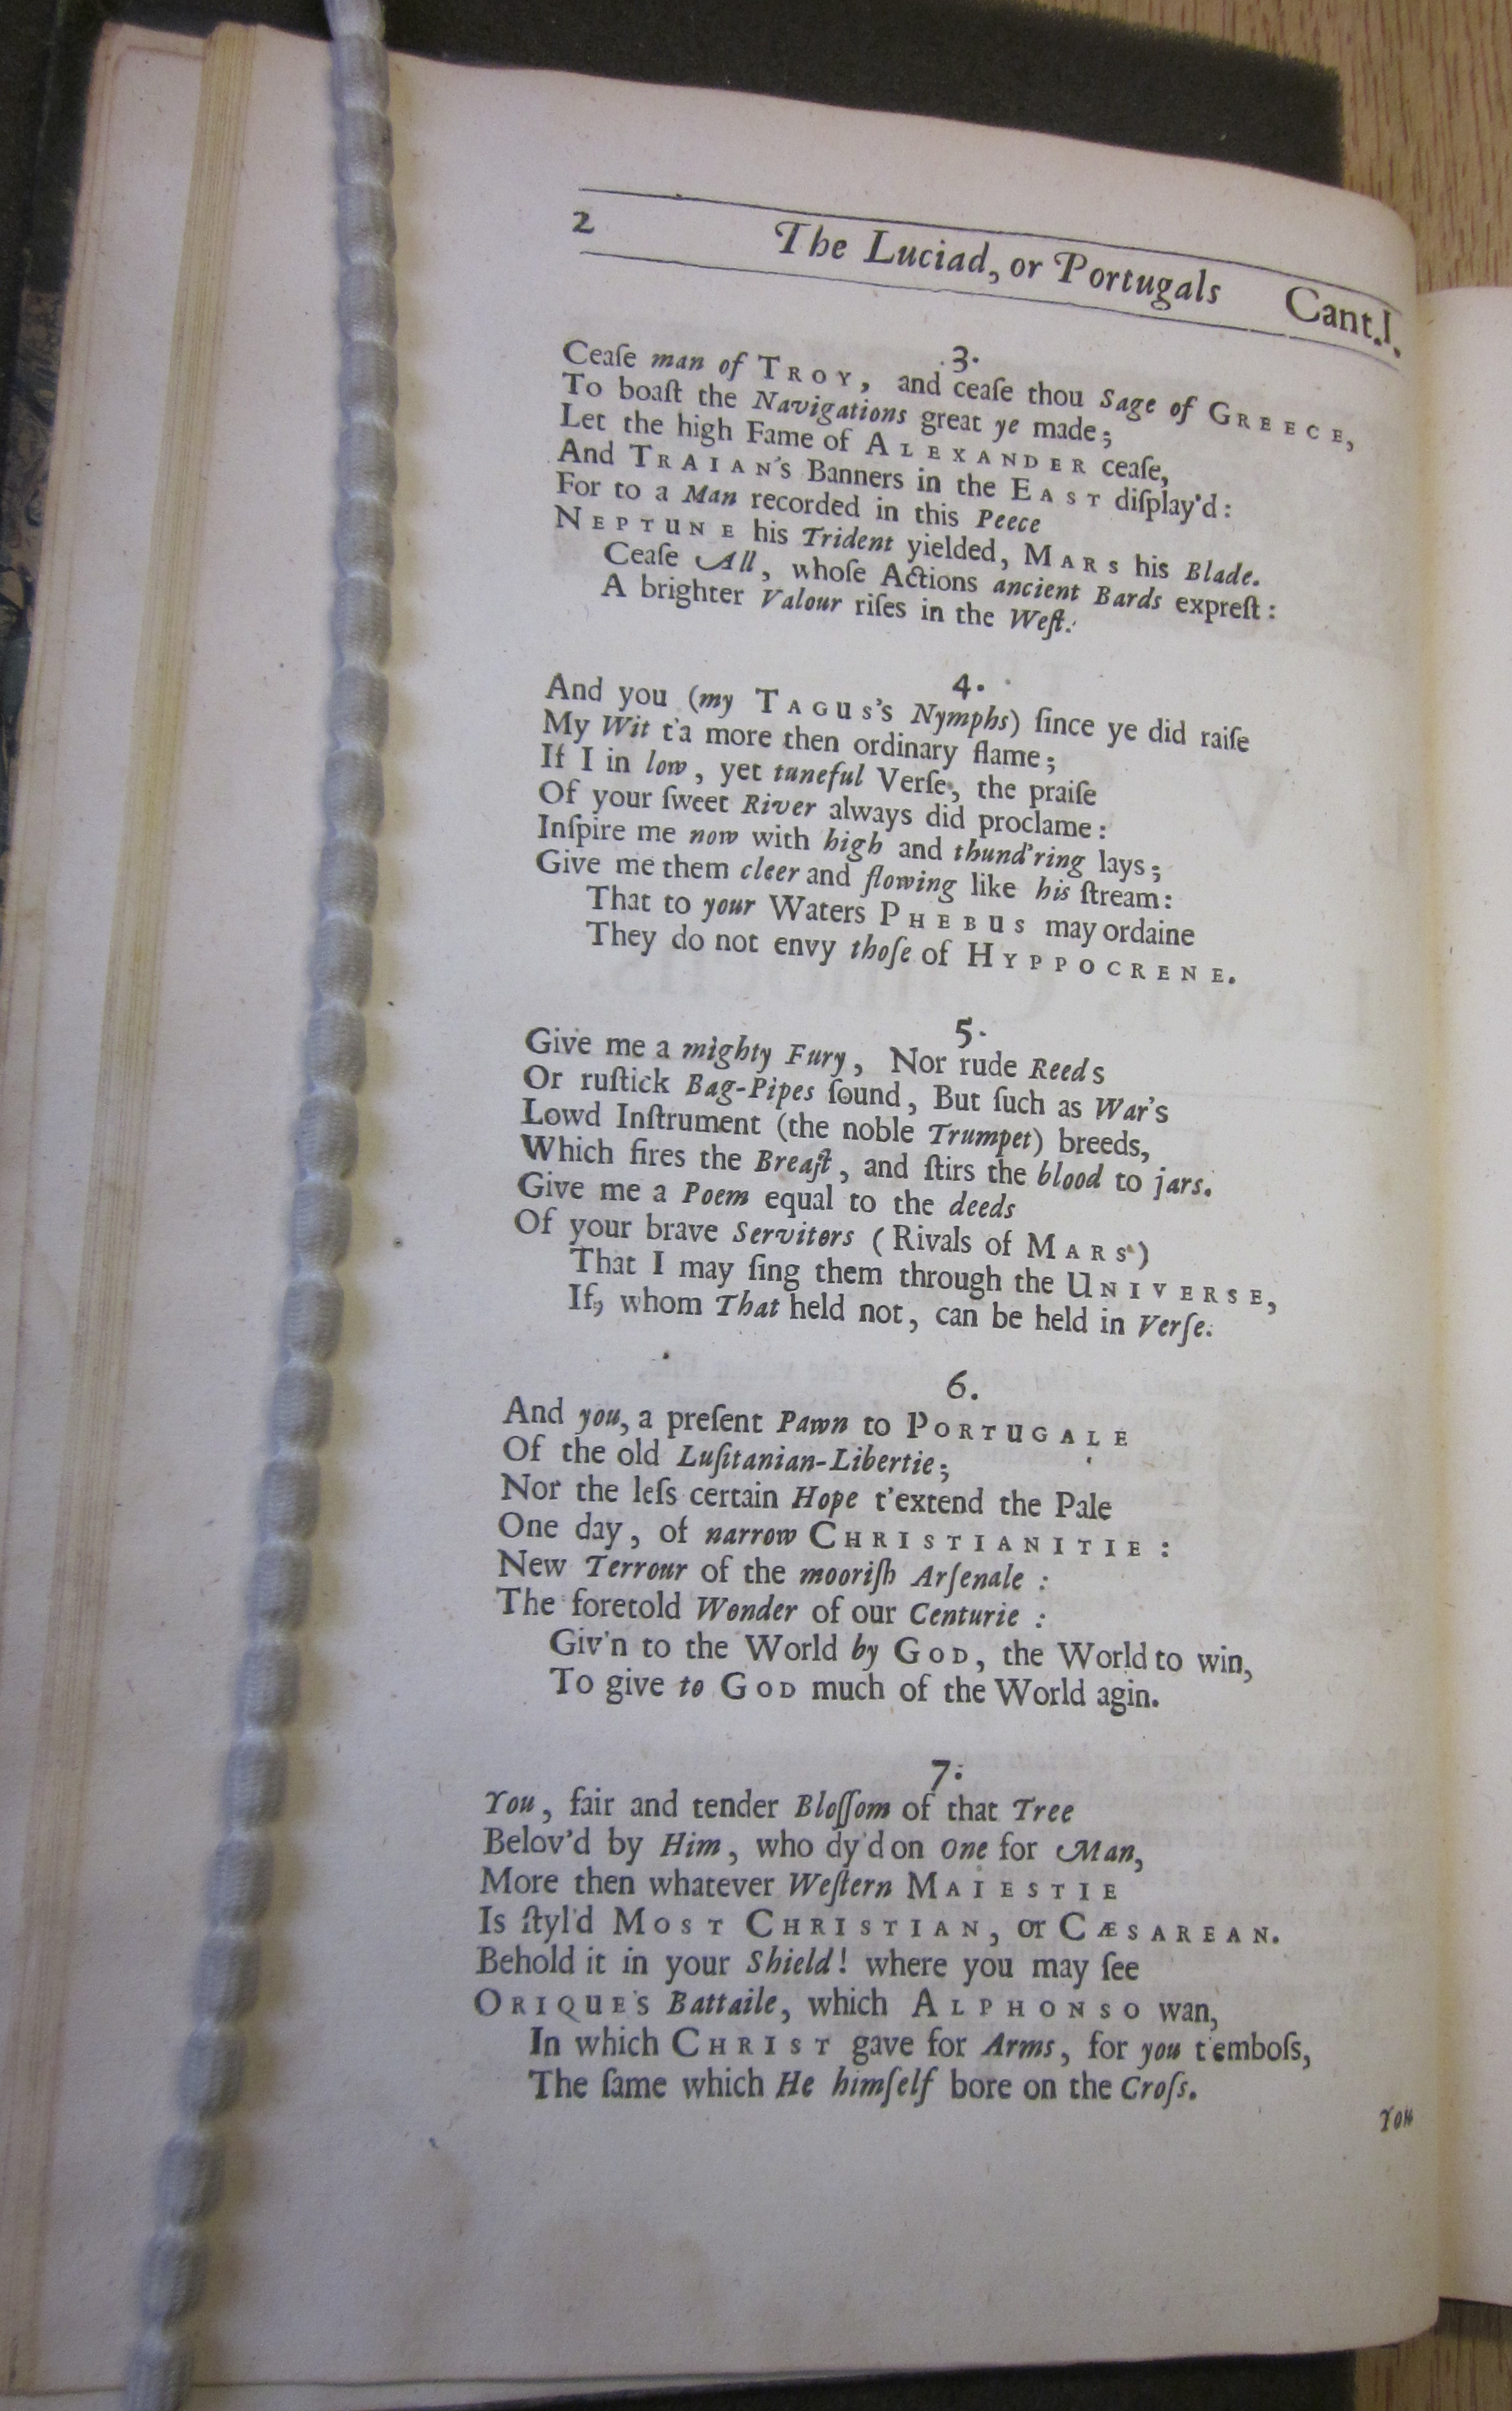 2 The Luciad, or Portugals Cant.I.
3.
Ceaſe man of TROY, and ceaſe thou Sage of GREECE,
To boaſt the Navigations great ye made;
Let the high Fame of ALEXANDER ceaſe,
And TRAIAN'S Banners in the EAST diſplay'd:
For to a Man recorded in this Peece
NEPTUNE his Trident yielded, MARS his Blade.
Ceaſe All, whoſe Actions ancient Bards expreſt:
A brighter Valour riſes in the Weſt.
4.
And you (my TAGUS's Nymphs) ſince ye did raiſe
My Wit t'a more then ordinary flame;
If I in low, yet tuneful Verſe, the praiſe
Of your ſweet River always did proclame:
Inſpire me now with high and thund'ring lays;
Give me them cleer and flowing like his ſtream:
That to your Waters PHEBUS may ordaine
They do not envy thoſe of HYPPOCRENE.
5.
Give me a mighty Fury, Nor rude Reeds
Or ruſtick Bag-Pipes ſound, But ſuch as War's
Lowd Inſtrument (the noble Trumpet) breeds,
Which fires the Breaſt, and ſtirs the blood to jars.
Give me a Poem equal to the deeds
Of your brave Servitors (Rivals of MARS)
That I may ſing them through the UNIVERSE,
If, whom That held not, can be held in Verſe.
6.
And you, a preſent Pawn to PORTUGALE
Of the old Luſitanian-Libertie;
Nor the leſs certain Hope t'extend the Pale
One day, of narrow CHRISTIANITIE:
New Terrour of the mooriſh Arſenale:
The foretold Wonder of our Centurie:
Giv'n to the World by GOD, the World to win,
To give to GOD much of the World agin.
7.
You, fair and tender Bloſſom of that Tree
Belov'd by Him, who dy'd on One for Man,
More then whatever Weſtern MAIESTIE
Is ſtyl'd MOST CHRISTIAN, or CÆSAREAN.
Behold it in your Shield! where you may ſee
ORIQUE'S Battaile, which ALPHONSO wan,
In which CHRIST gave for Arms, for you t'emboſs,
The ſame which He himſelf bore on the Croſs.
You